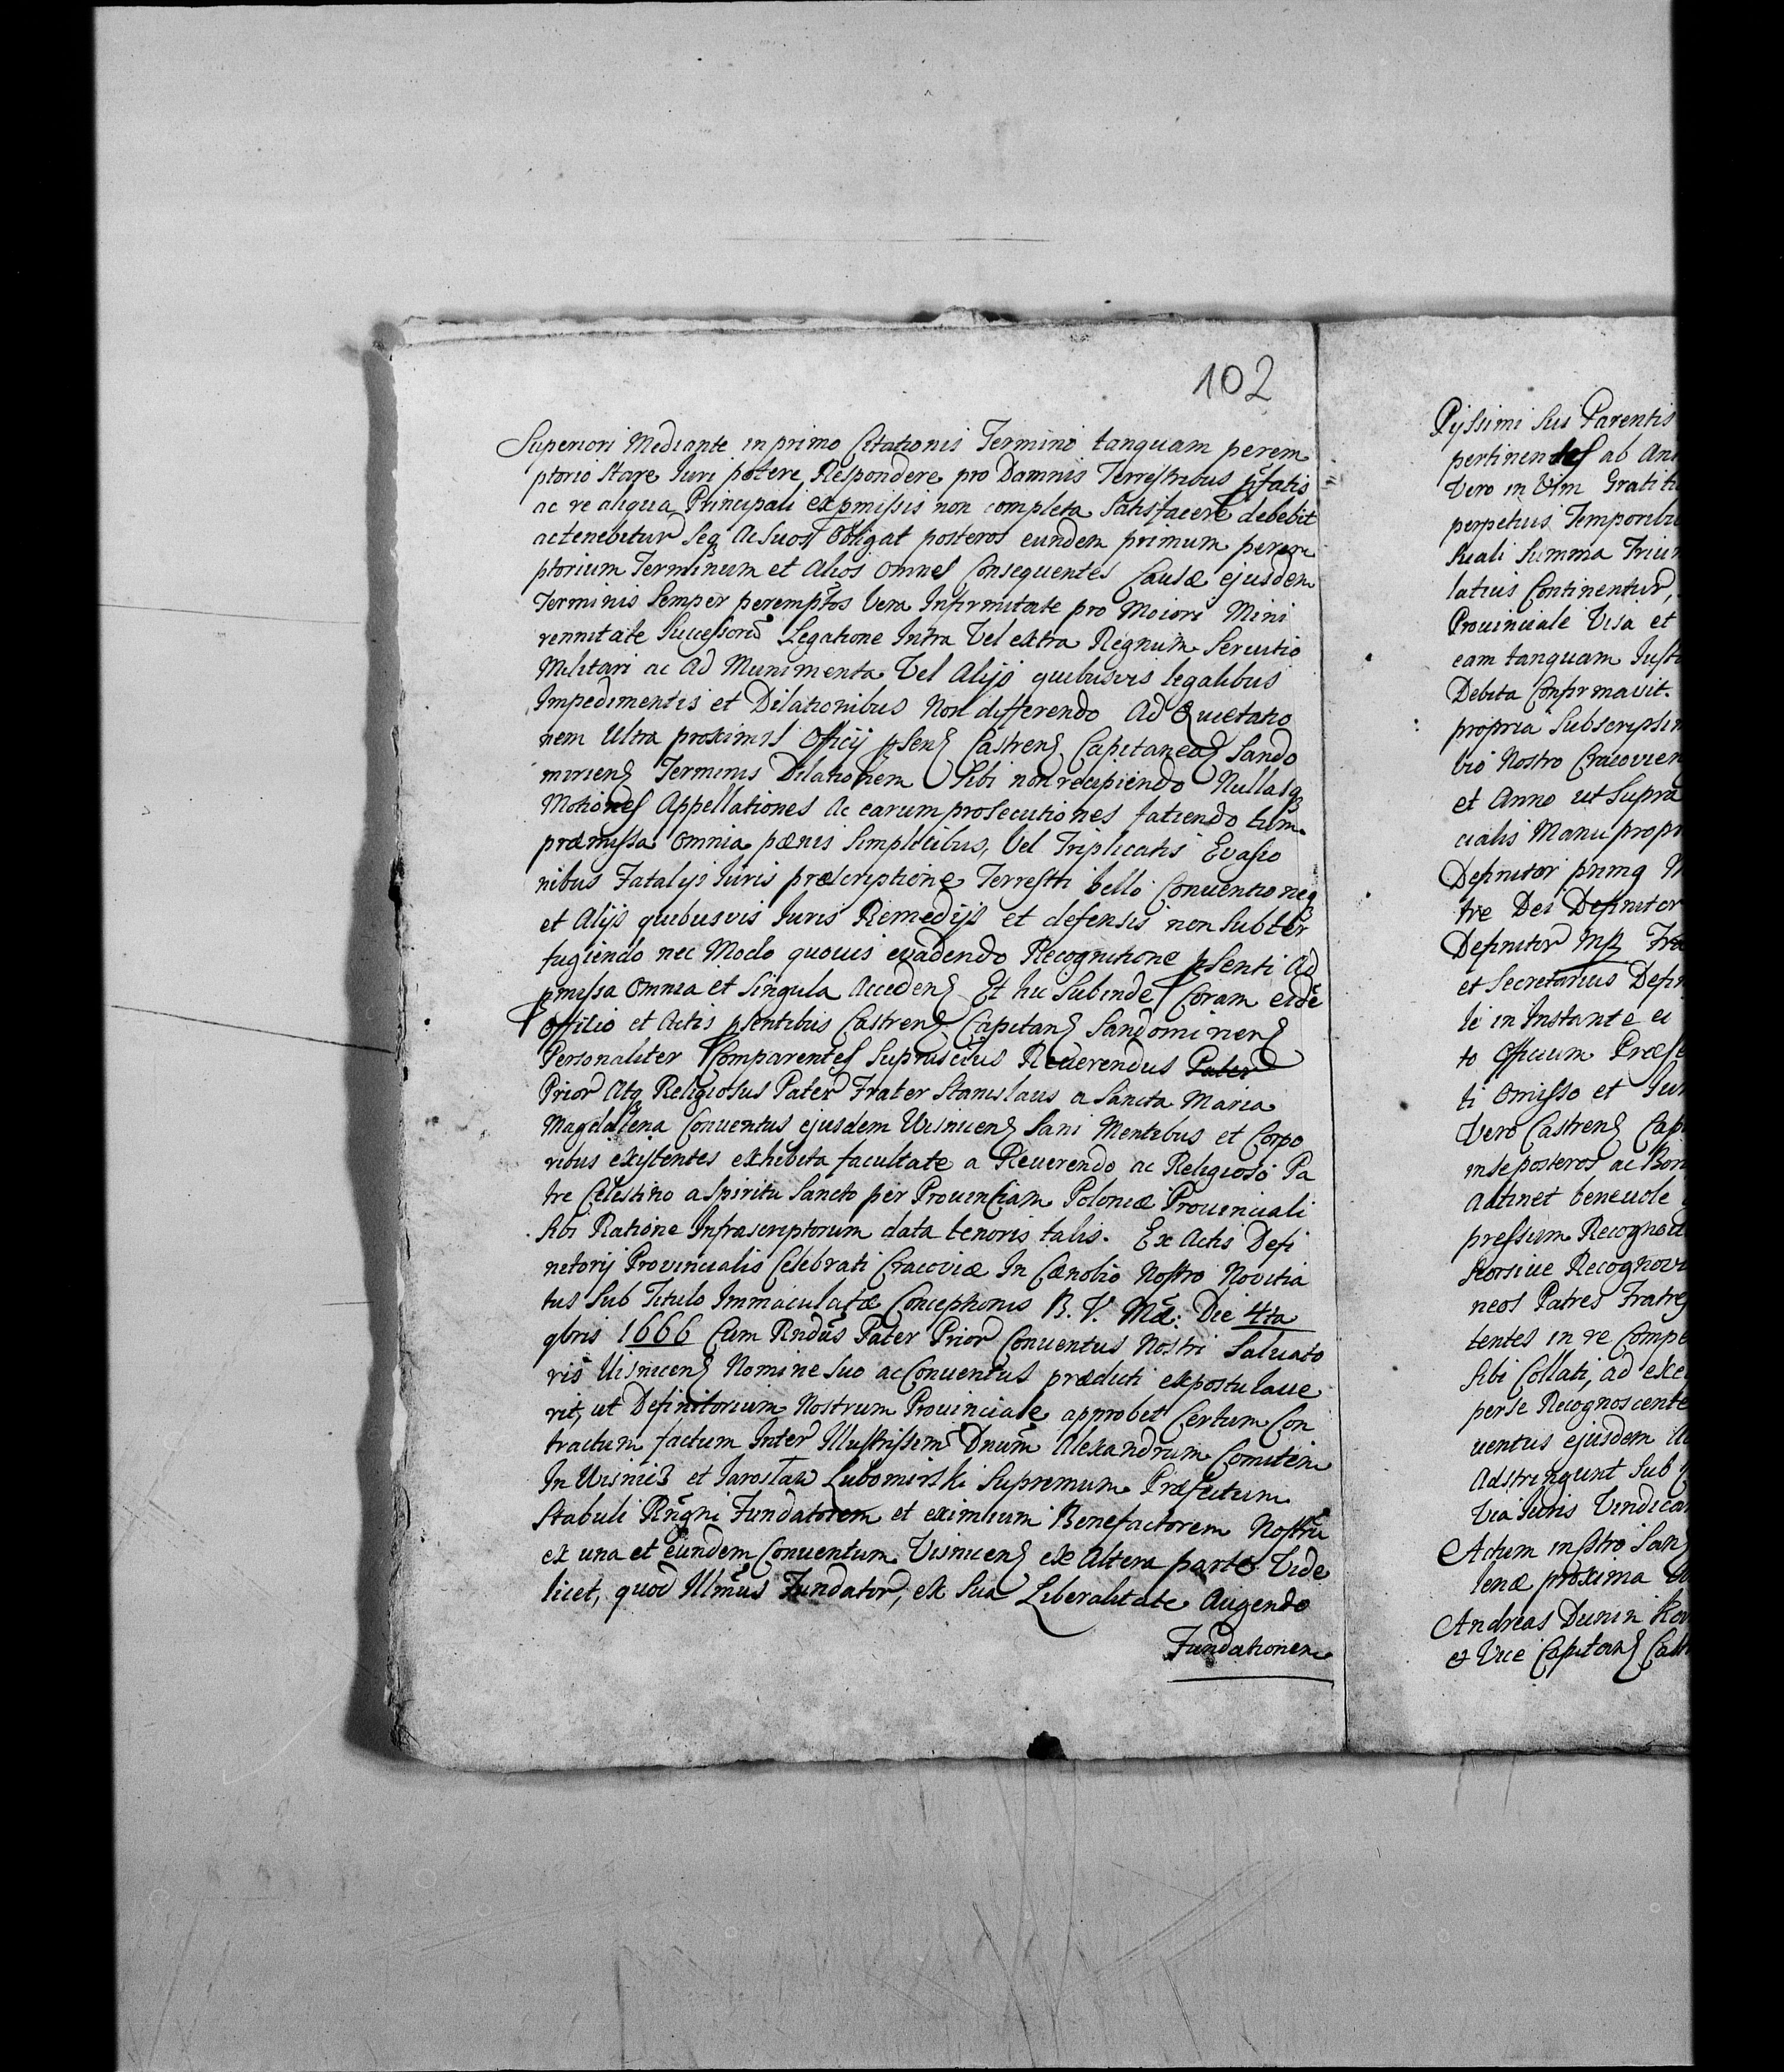 102
Superiori Mediante in primo Citationis Termino tanquam perem
ptorio Stare Juri petere Respondere pro Damnis Terrestribus pfatis
ac re aliqua Principali ex pmissis non completa Satisfacere debebit
ac tenebitur Seq Ac Suos Obligat posteros eundem primum perem
ptorium Terminum et Alios Omnes Consequentes Causæ ejusdem
Terminis Semper peremptos Vera Infirmitate pro Moiori Mini
rennitate Successorū Legatione Intra Vel extra Regnum Seruitio
Militari ac Ad Munimenta Vel Alijs quibusvis legalibus
Impedimentis et Dilationibus Non differendo Ad Quietatio
nem Ultra proximis Officij psens Castrens Capitaneas Sando
miriens Terminis Dilationem Sibi non recipiendo Nullasq
Motiones Appellationes Ac earum prosecutiones fatiendo tum
præmissa Omnia pænis Simplicibus, Vel Triplicatis Evasio
nibus Fatalijs Juris præscriptione Terrestri bello Conuentioneq
et Alijs quibusvis Juris Remedijs et defensis non Subter
fugiendo nec Modo quouis evadendo Recognitione psenti Ad
pmissa Omnia et Singula Accedens Et hic Subinde Coram eidē
Offitio et Actis psentibus Castrens Capitans Sandomirens
Personaliter Comparentes Suprascitus Reuerendus Pater
Prior Atq Religiosus Pater Frater Stanislaus a Sancta Maria
Magdalena Conuentus ejusdem Uisnicens Sani Mentibus et Corpo
ribus existentes exhibita facultate a Reuerendo ac Religioso Pa
tre Celestino a Spiritu Sancto per Prouinciam Poloniæ Prouinciali
Sibi Ratione Infrascriptorum data tenoris talis. Ex Actis Defi
nitorij Prouincialis Celebrati Cracoviæ In Cænobio Nostro Novitia
tus Sub Titulo Immaculatæ Conceptionis B. V. Mæ: Die 4ta
qbris 1666 Cum Rndus Pater Prior Conuentus Nostri Saluato
ris Uisnicens Nomine Suo ac Conuentus prædicti expostulaue
rit, ut Definitorium Nostrum Prouinciale approbet Certum Con
tractum factum Inter Illustrissem Dnum Alexandrum Comitem
In Uisnicz et Jarosław Lubomirski Supremum Præfectum
Stabuli Rngni Fundatorem et eximium Benefactorem Nostrū
ex una et eundem Conuentum Visnicens ex Altera parte Vide
licet, quod Illmus Fundator, ex Sua Liberalitate Augendo
Fundationem
Pijssimi Sui Parentis
pertinentes ab An
Vero in Vim Gratit
perpetuis Temporibu
Suali Summa Triu
latius Continentur,
Prouinciale Visa et
eam tanquam Just
Debita Confirmavit.
propria Subscripsi
bio Nostro Cracovien
et Anno ut Supra
cialis Manu propr
Definitor primq
tre Dei Definitor
Definitor mp Fra
et Secretarius Defin
le in Instante e
to Officium Præse
ti Omisso et Jur
Vero Castrens Cap
in se posteros ac Bon
Attinet beneuole
pressum Recognou
Seorsiue Recognov
neos Patres Fratres
tentes in re Compe
Sibi Collati, ad exe
per se Recognoscente
uentus ejusdem
Adstringunt Sub
Via Juris Vendica
Actum in Stro San
lenæ proxima
Andreas Dunin
& Vice Capitans Cast